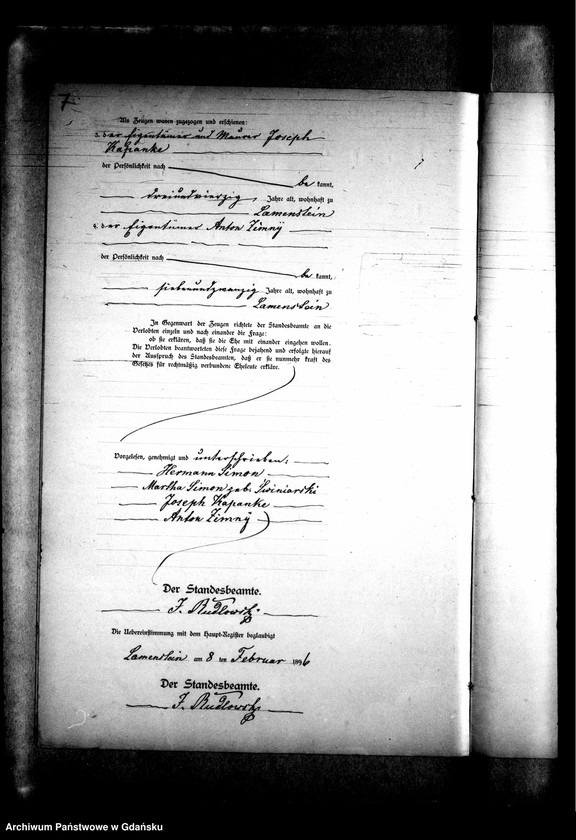 7
Als Zeugen waren zugezogen und erschienen:
3. der Eigentümer und Maurer Joseph
Kapanke
der Persönlichkeit nach
be kannt,
dreiundvierzig Jahre alt, wohnhaft zu
Lamenstein
4. der Eigentümer Anton Zimny
der Persönlichkeit nach
be kannt,
siebenundzwanzig Jahre alt, wohnhaft zu
Lamenstein
In Gegenwart der Zeugen richtete der Standesbeamte an die
Verlobten einzeln und nach einander die Frage:
ob sie erklären, daß sie die Ehe mit einander eingehen wollen.
Die Verlobten beantworteten diese Frage bejahend und erfolgte hierauf
der Ausspruch des Standesbeamten, daß er sie nunmehr kraft des
Gesetzes für rechtmäßig verbundene Eheleute erkläre.
Vorgelesen, genehmigt und unterschrieben:
Hermann Simon
Martha Simon geb. Swiniarski
Joseph Kapanke
Anton Zimny
Der Standesbeamte.
J. Rudlowski
Die Uebereinstimmung mit dem Haupt-Register beglaubigt
Lamenstein am 8 ten Februar 1896
Der Standesbeamte.
J. Rudlowski
Archiwum Państwowe w Gdańsku